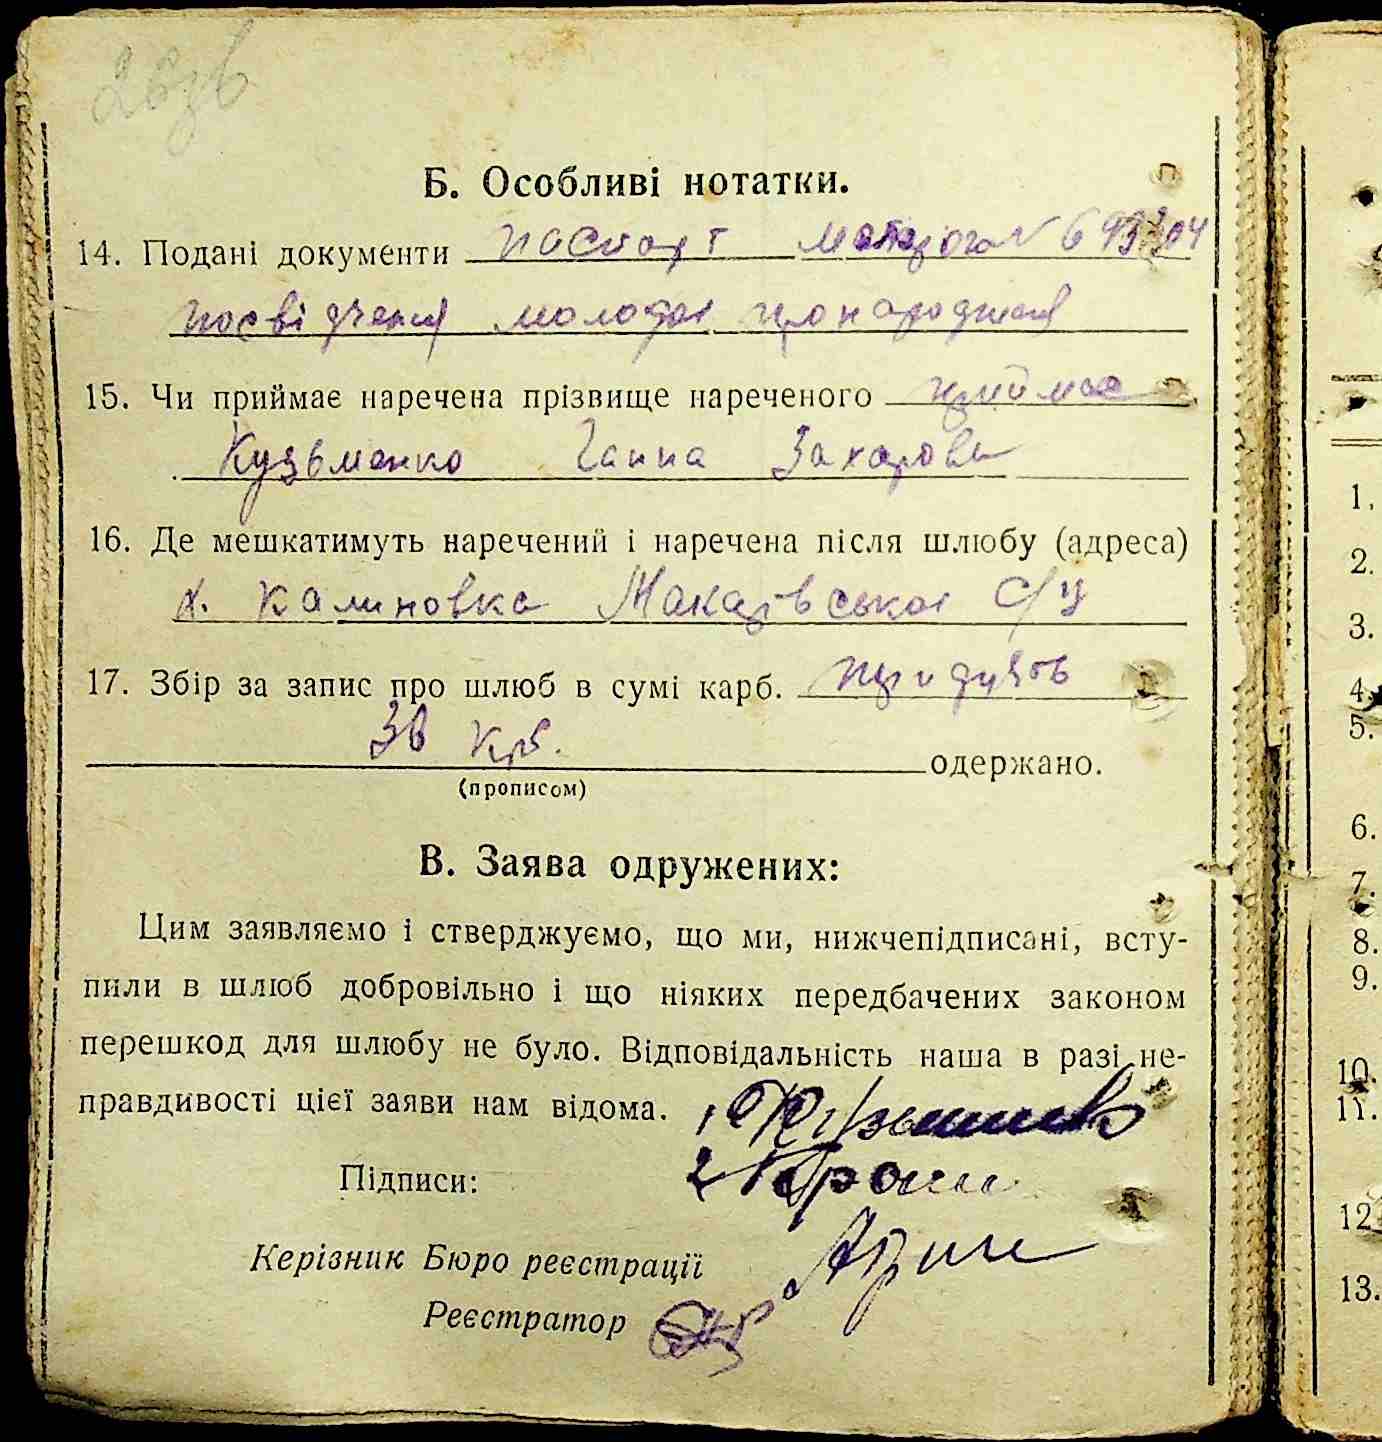 Б. Особливі нотатки.
14. Подані документи паспорт молодого №
посвідчення молодої про народження
15. Чи приймає наречена прізвище нареченого приймає
Кузьменко Ганна Захарова
16. Де мешкатимуть наречений і наречена після шлюбу (адреса)
х. Калиновка с/ц
17. Збір за запис про шлюб в сумі карб.
крб.
одержано.
(прописом)
В. Заява одружених:
Цим заявляємо і стверджуємо, що ми, нижчепідписані, всту-
пили в шлюб добровільно і що ніяких передбачених законом
перешкод для шлюбу не було. Відповідальність наша в разі не-
правдивості цієї заяви нам відома. 1
Підписи: 2
Керізник Бюро реєстрації
Реєстратор
1.
2.
3.
4.
5.
6.
7.
8.
9.
10.
11.
12
13.